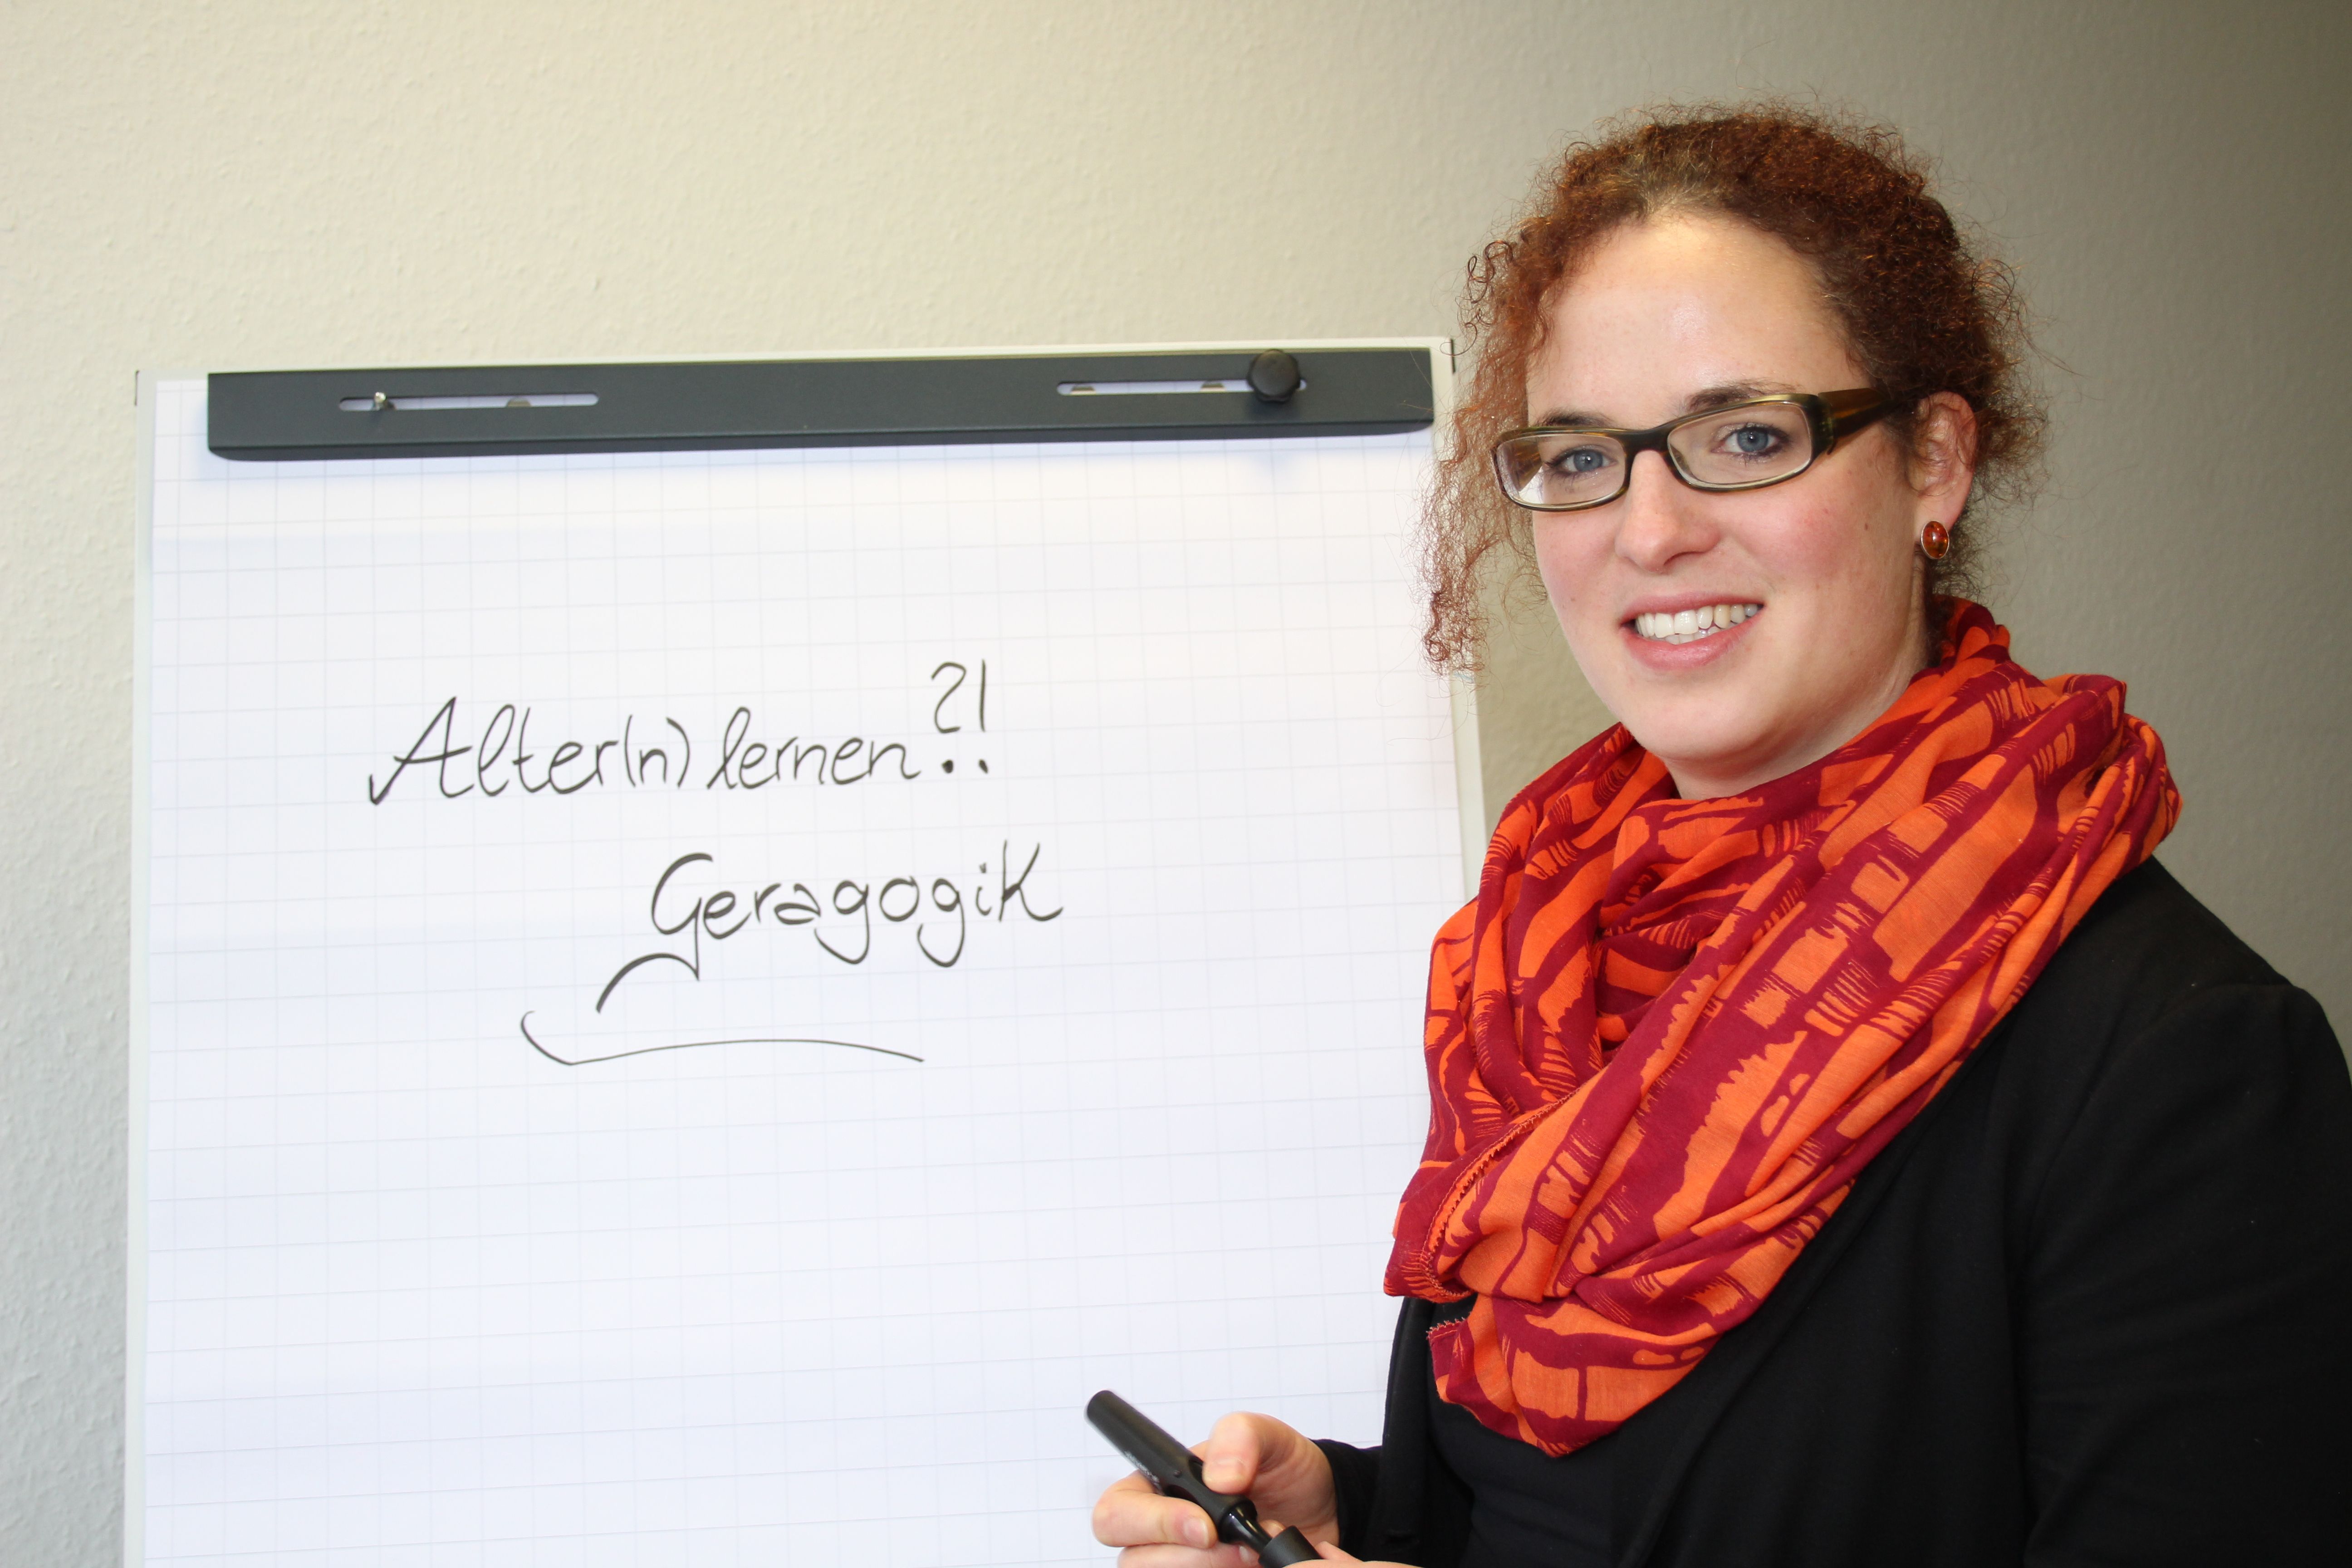 Alter(n) lernen?!
Geragogik